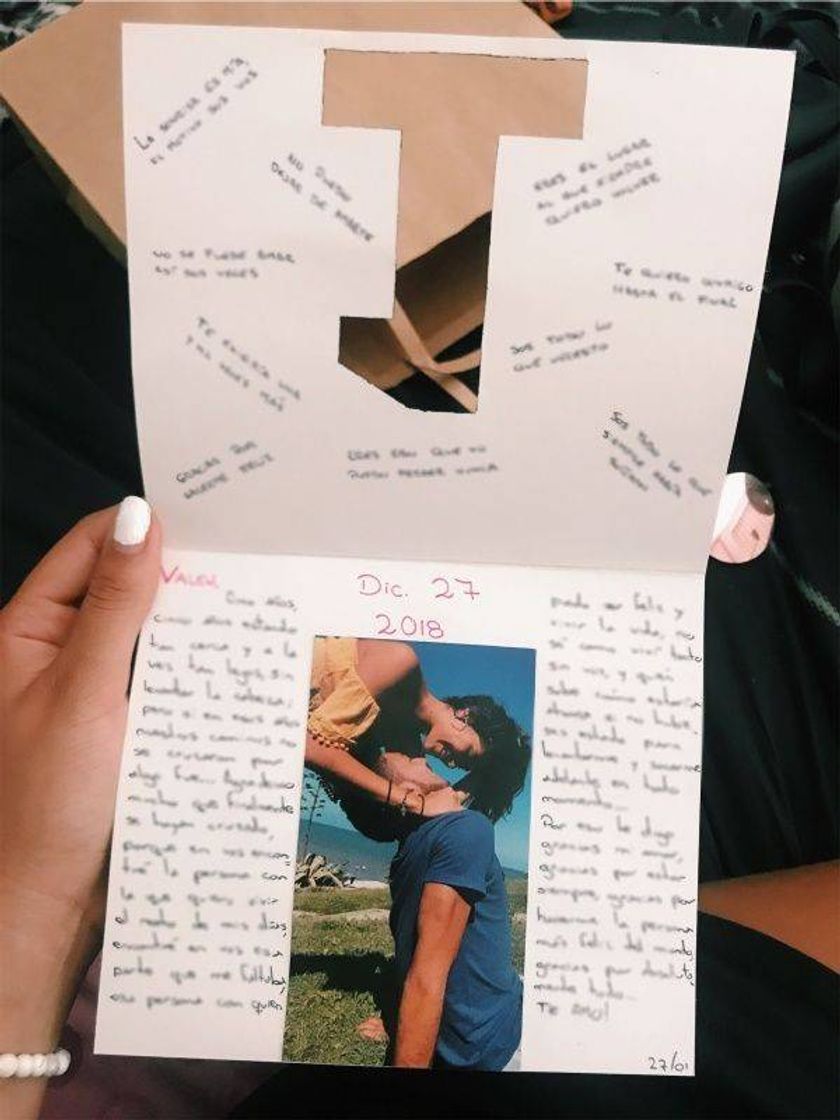 LA SONRISA ES MÍA,
EL MOTIVO SOS VOS
NO PUEDO
DEJAR DE AMARTE
ERES EL LUGAR
AL QUE SIEMPRE
QUIERO VOLVER
NO SE PUEDE
ASÍ DOS VECES
TE QUIERO CONMIGO
HASTA EL FINAL
TE ELEGIRÍA UNA
Y MIL VECES MÁS
SOS TODO LO
QUE NECESITO
GRACIAS POR
HACERME FELIZ
ERES ESO QUE NO
PUEDO PERDER NUNCA
SOS TODO LO QUE
SIEMPRE
VALEN
Dic. 27
2018
años,
años estando
tan cerca y a la
vez tan lejos, sin
levantar la cabeza,
pero si en esos años
nuestros caminos no
se cruzaron por
algo fue... Agradezco
mucho que finalmente
se hayan cruzado,
porque en vos encon
tré la persona con
la que quiero vivir
el resto de mis días,
encontré en vos esa
parte que me faltaba,
esa persona con quien
puedo ser feliz y
vivir la vida, no
sé como viví tanto
sin vos, y que
sabe como estaría
ahora si no hubie
ses estado para
levantarme y sacarme
adelante en todo
momento...
Por eso te digo
gracias mi amor,
gracias por estar
siempre, gracias por
hacerme la persona
más feliz del mundo,
gracias por absoluta
mente todo...
TE AMO!
27/01